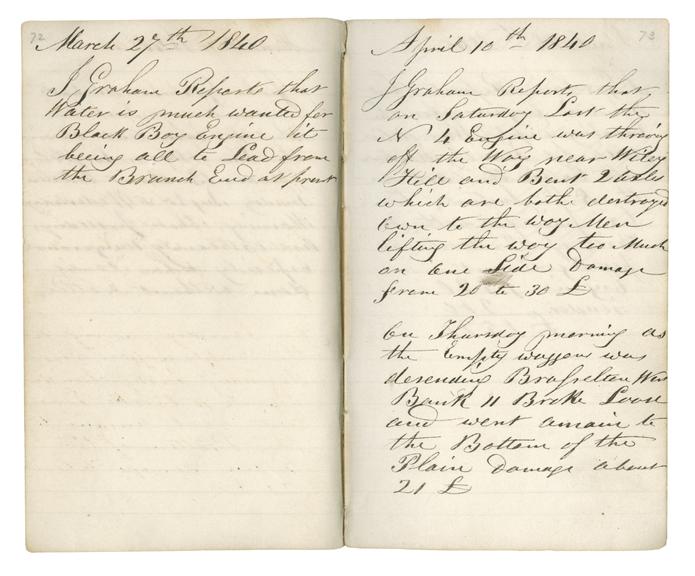 72
March 27th 1840
J Graham Reports that
Water is much wanted for
Black Boy Engine it
being all to Lead from
the Branch End at present
73
April 10th 1840
J Graham Reports that
on Saturday Last the
N 4 Engine was thrown
off the Way near
Hill and Bent 2 axles
which are both destroyed
own to the way Men
lifting the way too Much
on one Side Damage
from 20 to 30 £
On Thursday morning as
the Empty waggons was
desending Brusselton West
Bank 11 Broke Loose
and went amain to
the Bottom of the
Plain Damage about
21 £